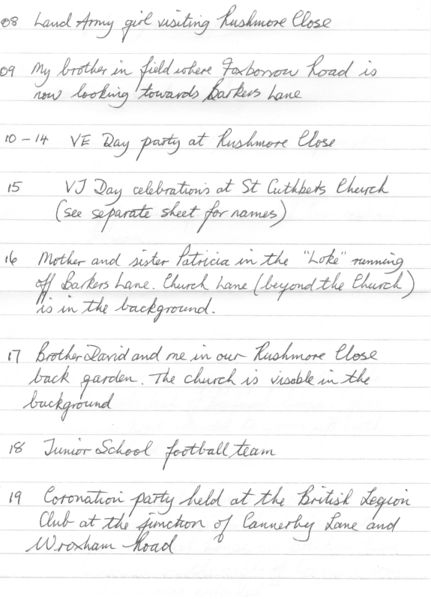 08 Land Army girl visiting Rushmore Close
09 My brother in field where Foxborrow Road is
now looking towards Barkers Lane
10-14 VE Day party at Rushmore Close
15 VJ Day celebrations at St Cuthbets Church
(see separate sheet for names)
16 Mother and sister Patricia in the "Loke" running
off Barkers Lane. Church Lane (beyond the Church)
is in the background.
17 Brother David and me in our Rushmore Close
back garden. The church is visable in the
background
18 Junior School football team
19 Coronation party held at the British Legion
Club at the junction of Cannerby Lane and
Wroxham Road